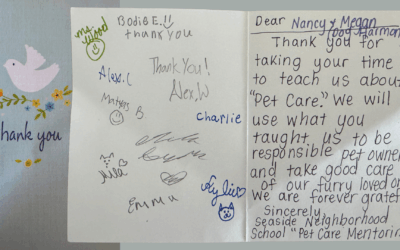 thank you
Bodie E.!!
thank you
Alex.C
Thank You!
Alex.W
Charlie
Julia
Kylie
Emma
Dear Nancy & Megan
Thank you for
taking your time
to teach us about
"Pet Care." We will
use what you
taught us to be
responsible pet owner
and take good care
of our furry loved on
We are forever gratef
Sincerely,
Seaside Neighborhood
School "Pet Care Mentorin